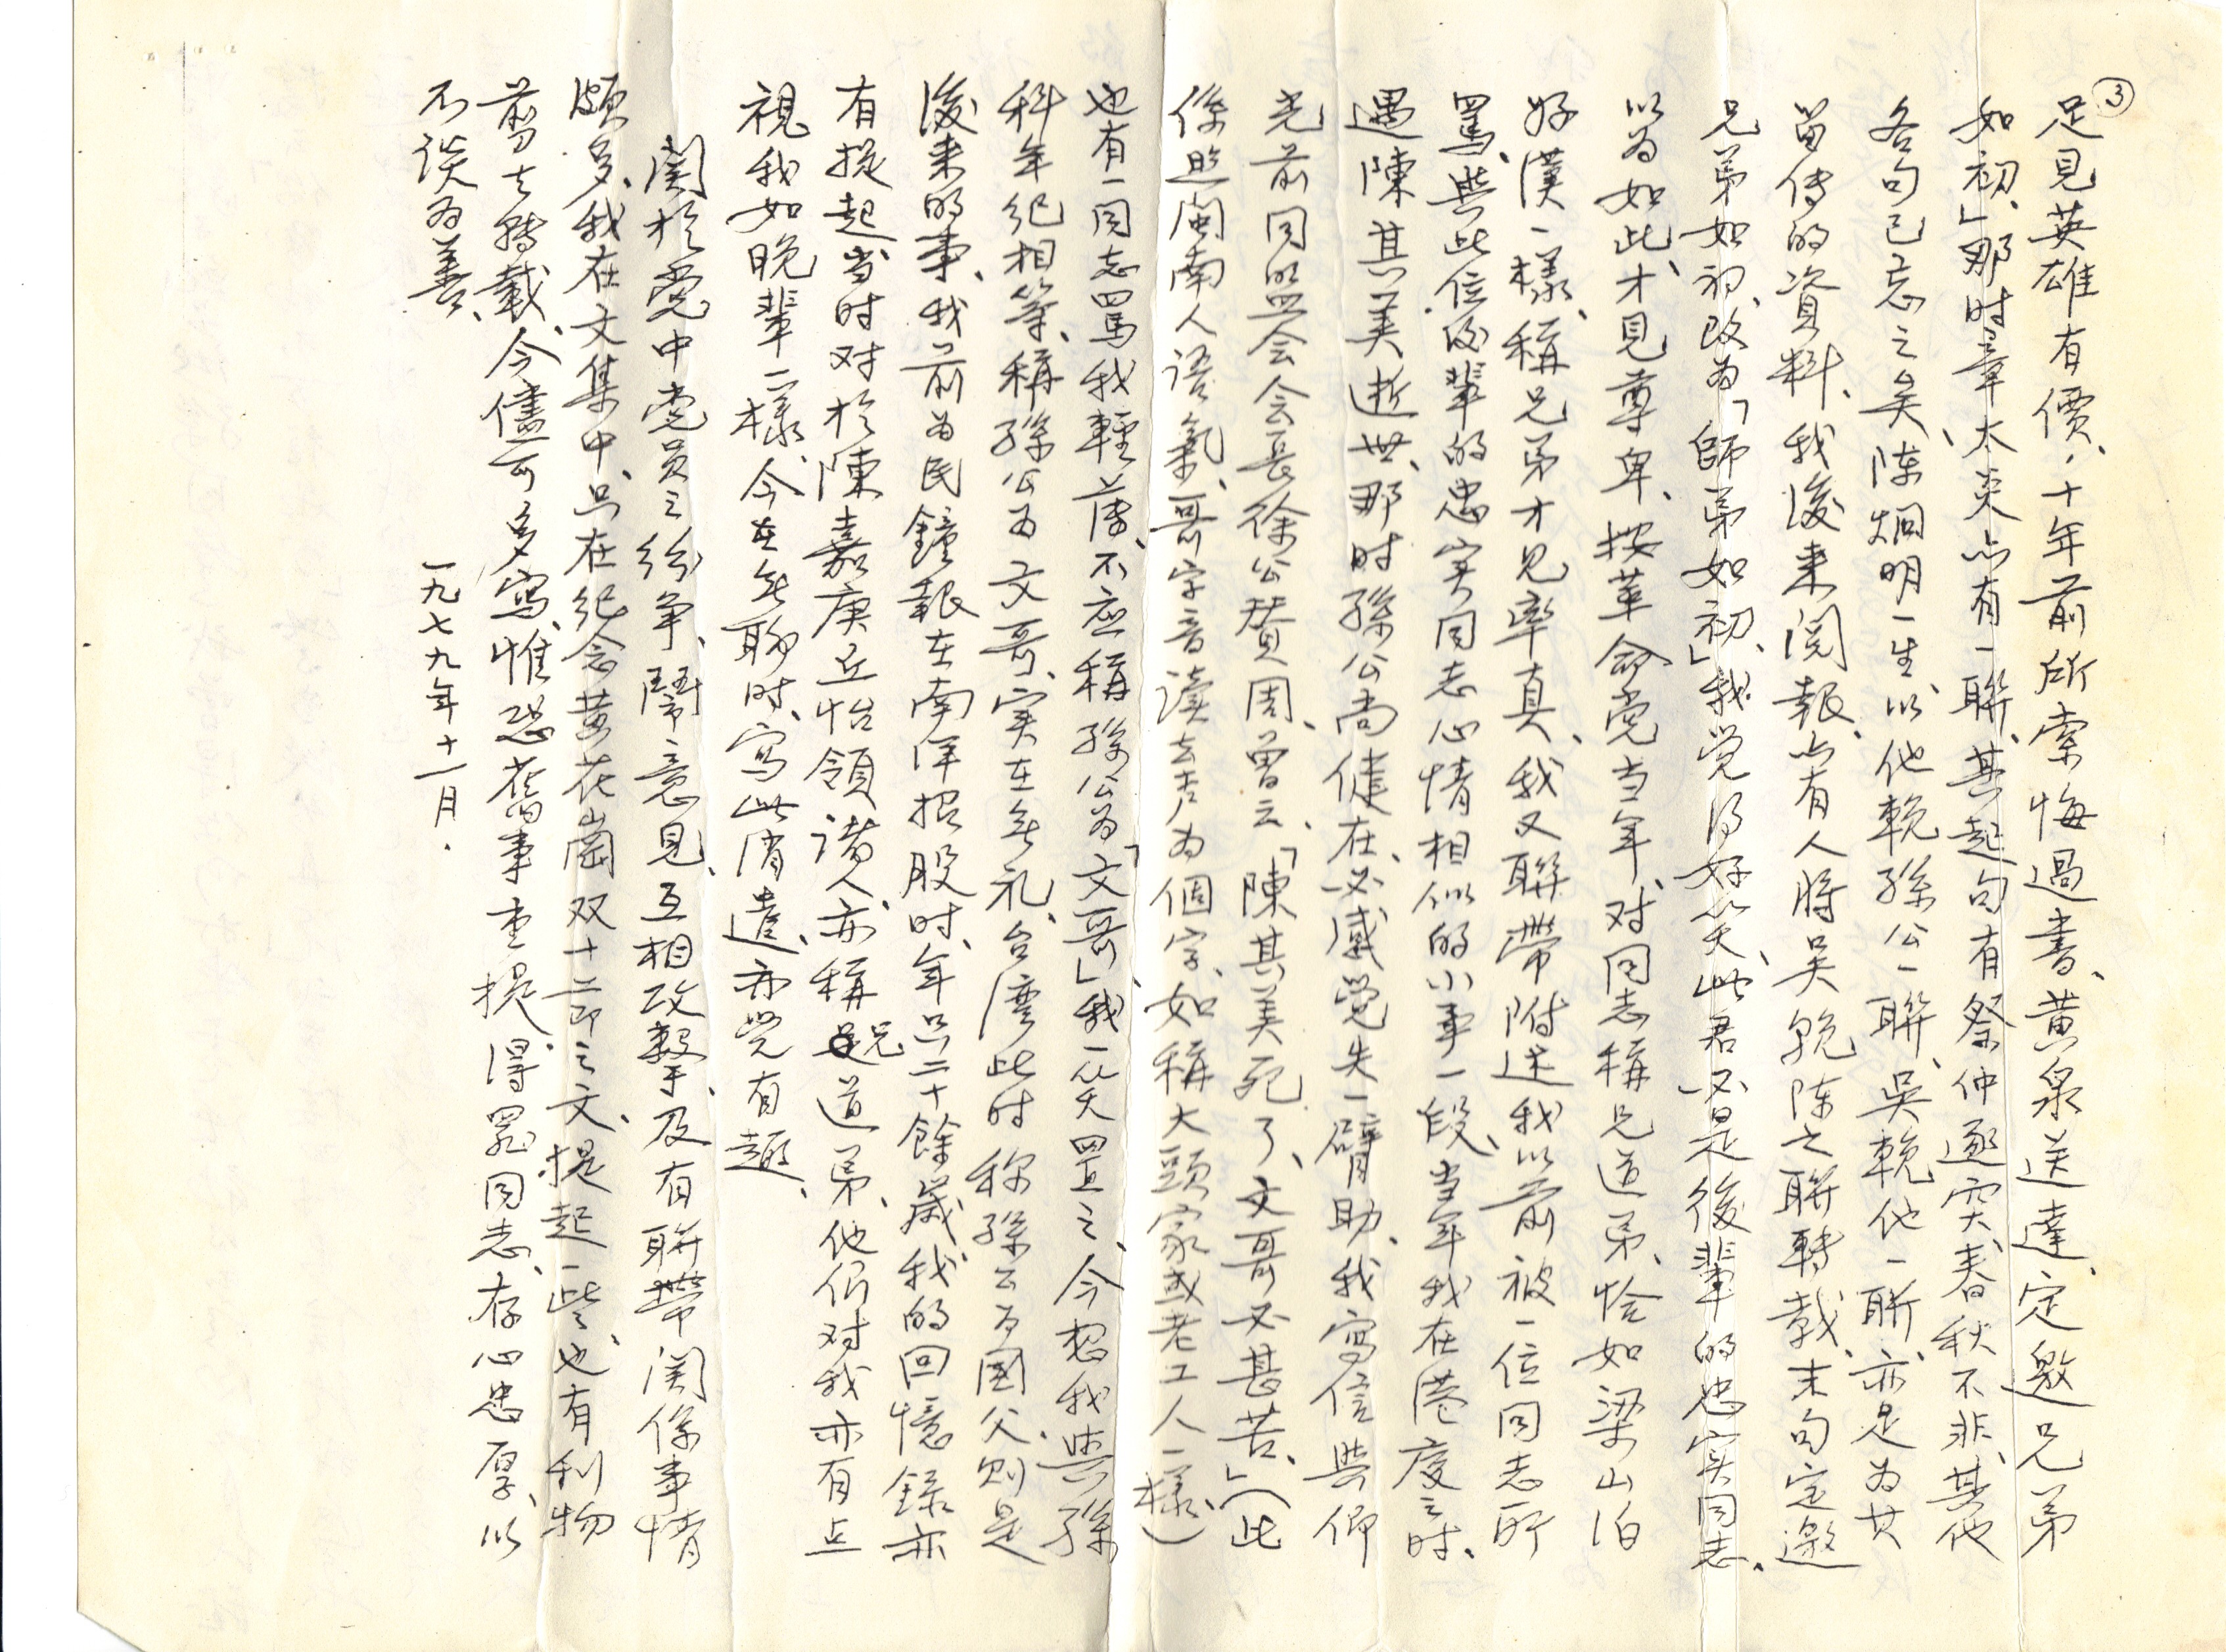 ③
足見英雄有價、十年前所索悔過書、黄泉送達、定邀兄弟
如初、」那时章太炎亦有一聯、其起句有祭仲逐突、春秋不非、其他
各句已忘之矣、陈烱明一生以他輓孫公一聯、吳輓他一聯、亦是为其
留傳的資料、我後来阅報、亦有人將吳輓陈之聯轉載、末句定邀
兄弟如初、改为「師弟如初、」我覚得好笑、此君必是後輩的忠实同志、
以为如此、才見尊卑、按革命党当年、对同志稱兄道弟、恰如梁山泊
好漢一樣、稱兄弟才見率真、我又聯帶附述我以前被一位同志所
罵、與此位後輩的忠实同志心情相似的小事一段、当年我在港度之时、
遇陳其美逝世、那时孫公尚健在、必感覺失一臂助、我寫信與仰
光前同盟会会長徐公贊周、曾云、「陳其美死了、文哥必甚苦、」（此
係照閩南人语氣、哥字音读去声为個字、如稱大頭家或老工人一樣、）
也有一同志罵我輕薄、不应稱孫公为「文哥」、我一笑置之、今想我與孫
科年纪相等、稱孫公为文哥、实在無礼、台灣此时称孫公为國父、则是
後来的事、我前为民鐘報在南洋招股时、年只二十餘歲、我的回憶録亦
有提起当时对於陳嘉庚丘怡領諸人、亦稱兄道弟、他们对我亦有
視我如晚輩一樣、今在無聊时、寫此消遣、亦觉有趣、
関於党中党员之纷争、鬧意見、互相攻擊、及有聯帶関係事情
頗多、我在文集中、只在纪念黄花崗双十二節之文、提起一些、也有刊物
剪去轉載、今儘可多寫、惟恐舊事重提、得罪同志、存心忠厚、以
不谈为善、
一九七九年十一月．